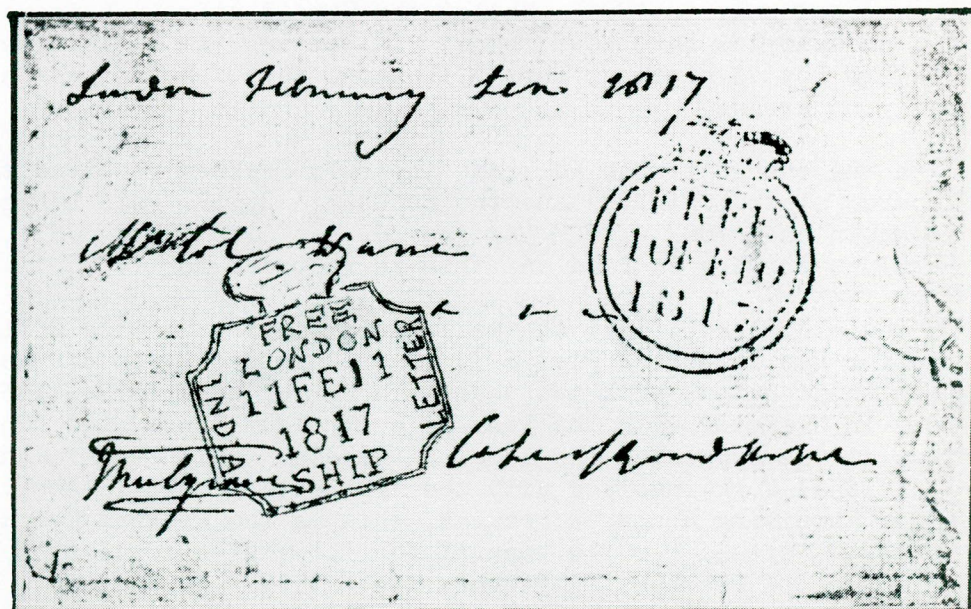 London February ten 1817
FREE
10FE10
1817
FREE
LONDON
11FE11
1817
INDIA LETTER
SHIP
Mulgrave
Cape of Good Hope